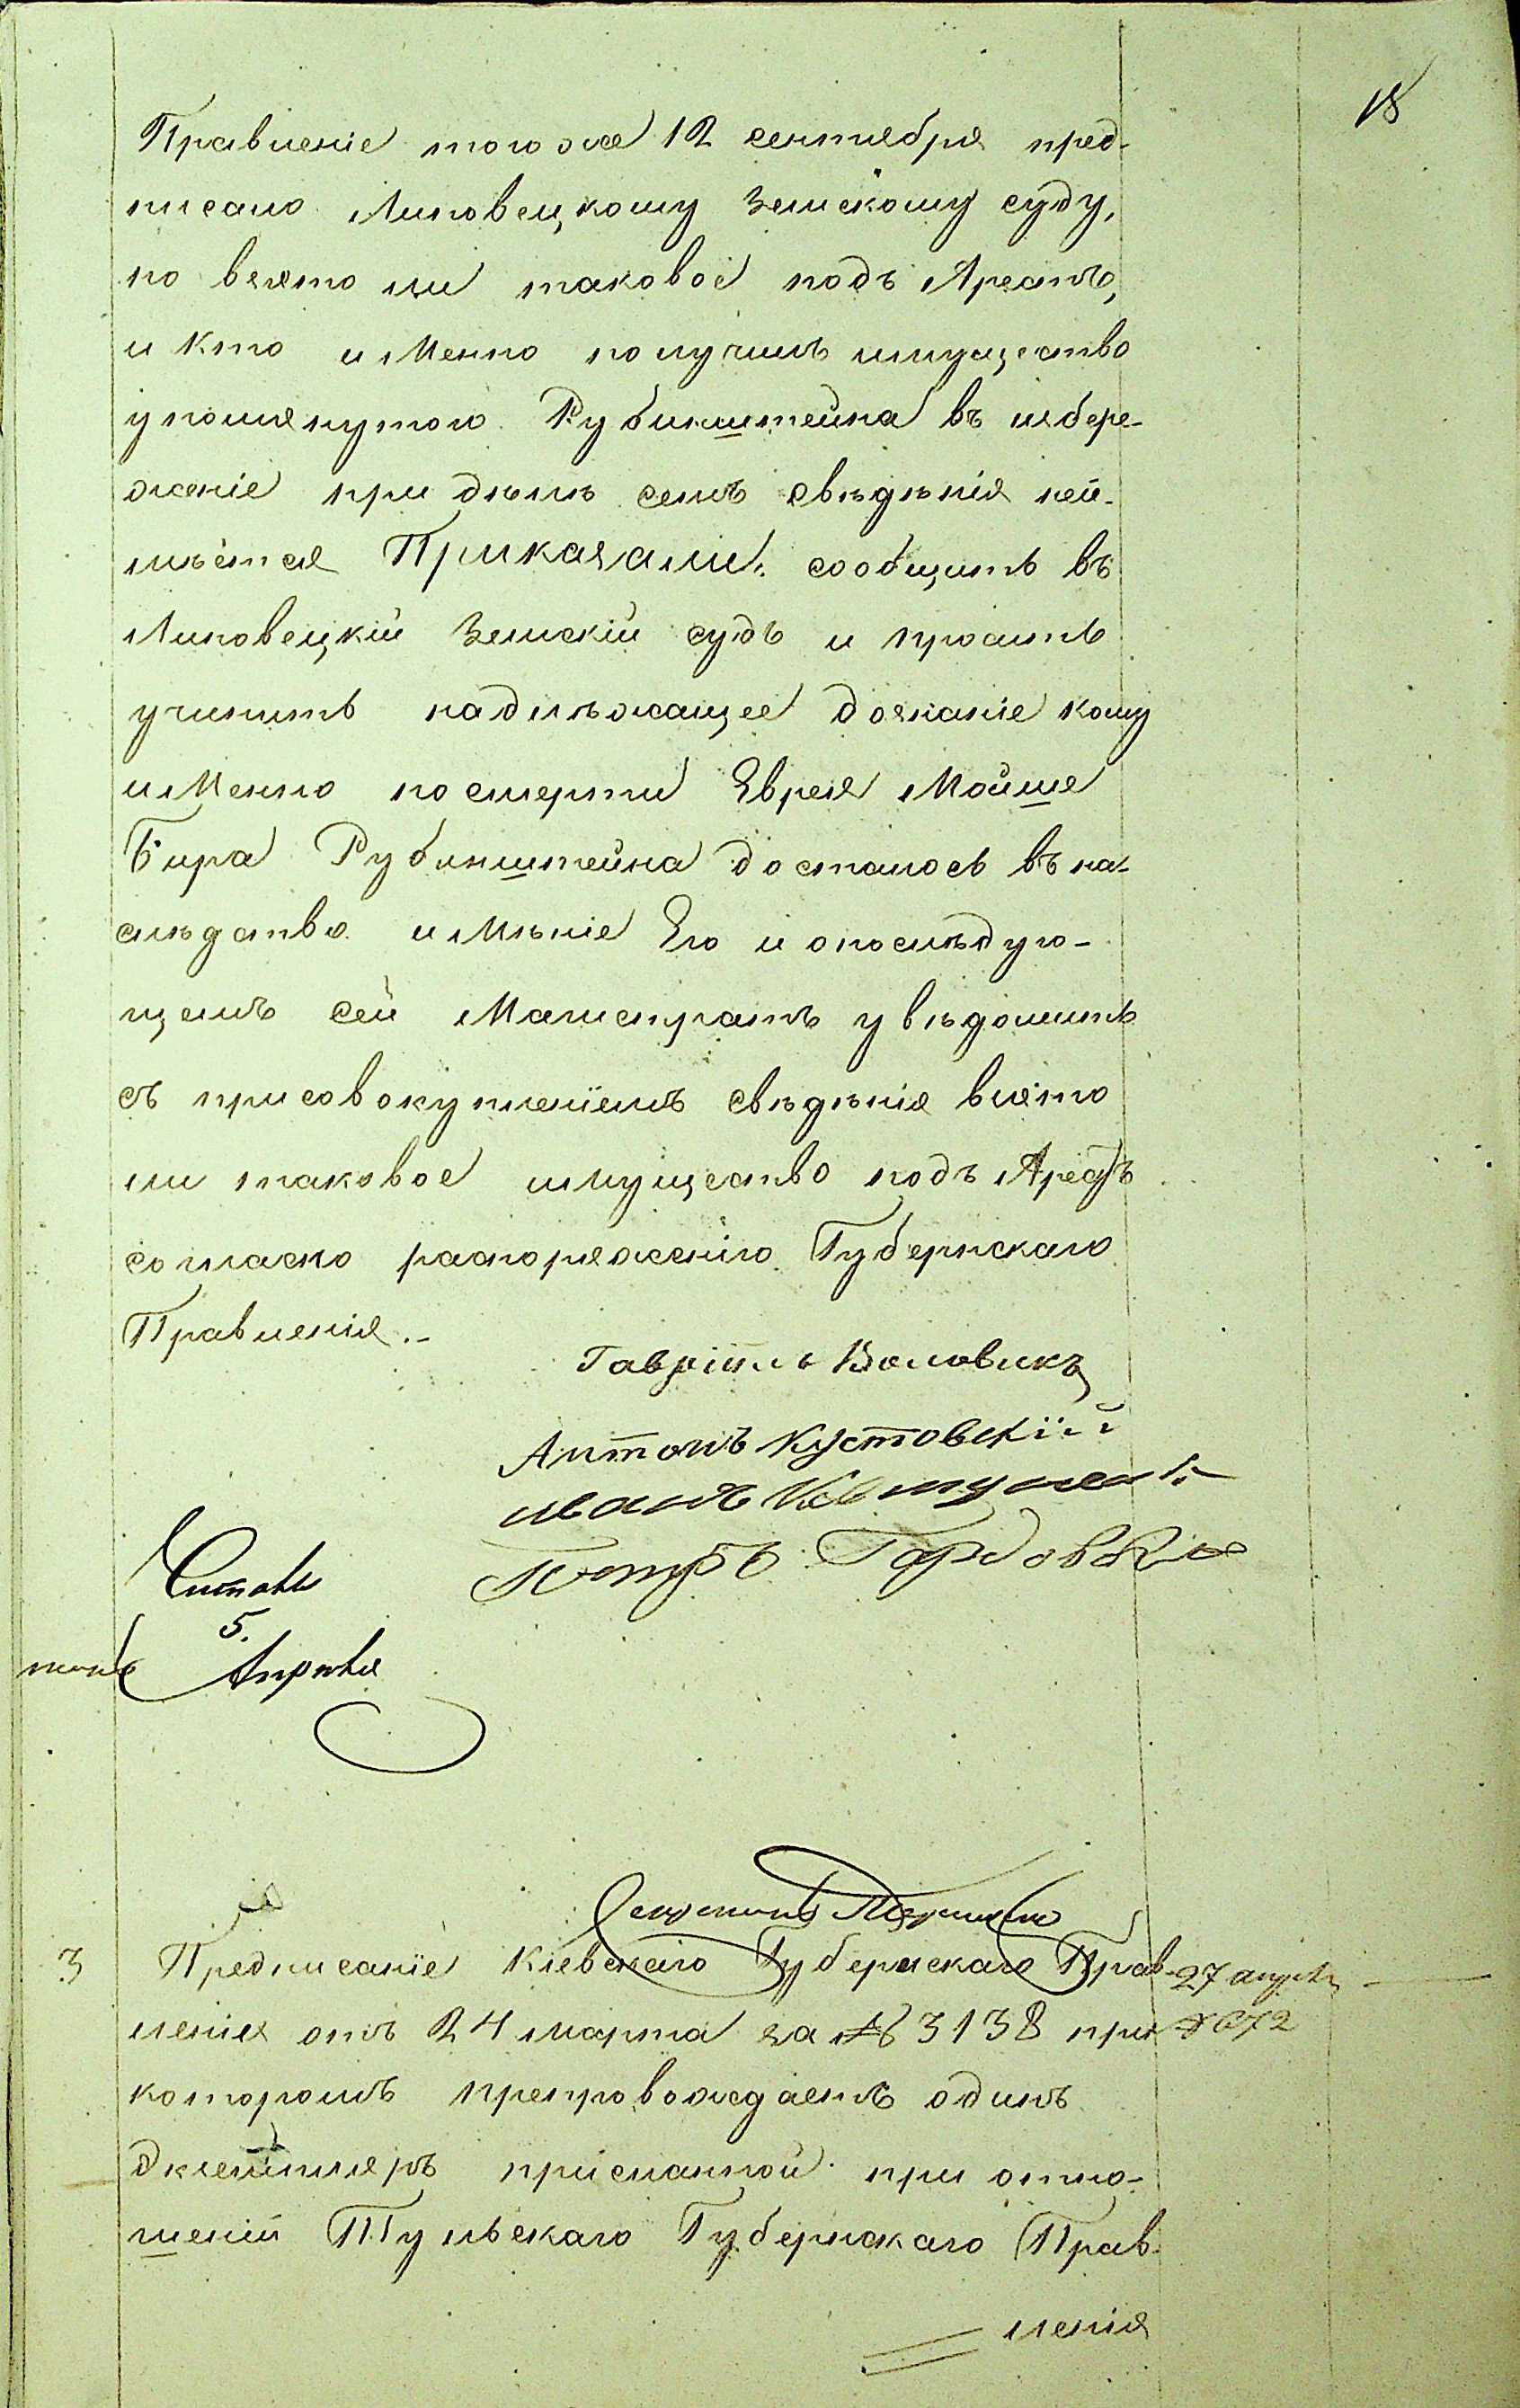 18
Правленіе того же 12 сентября пред-
писано Липовецкому Земскому суду,
но взято ли таковое подъ Арестъ,
и Кто иМенно получилъ имущество
упомянутого Рубинштейна въ избере-
женіе при дѣлѣ семъ свѣдѣнія неи-
мѣется Приказали: сообщить въ
Липовецкій Земскій судъ и просить
учинить надлѣжащее дознаніе кому
иМенно посмерти Еврея Мойше
Бира Рубинштейна досталось въ на-
слѣдство иМѣніе Его и опослѣдую-
щемъ сей Магистратъ увѣдомить
съ присовокупленіемъ свѣдѣнія взято
ли таковое имущество подъ Арестъ
согласно распоряженію Губернскаго
Правленія.-
Гавріилъ Воловикъ
Антонъ Кустовскій
иванъ
Петръ
Читалъ
5.
Апрѣля
Секретарь
3 Предписаніе Кіевскаго Губернскаго Прав- 27 апрѣля
ленія отъ 24 марта за № 3138 при № 672
которомъ препровождаетъ одинъ
Экземпляръ присланной при отно-
шеніи Тульскаго Губернскаго Прав-
ленія